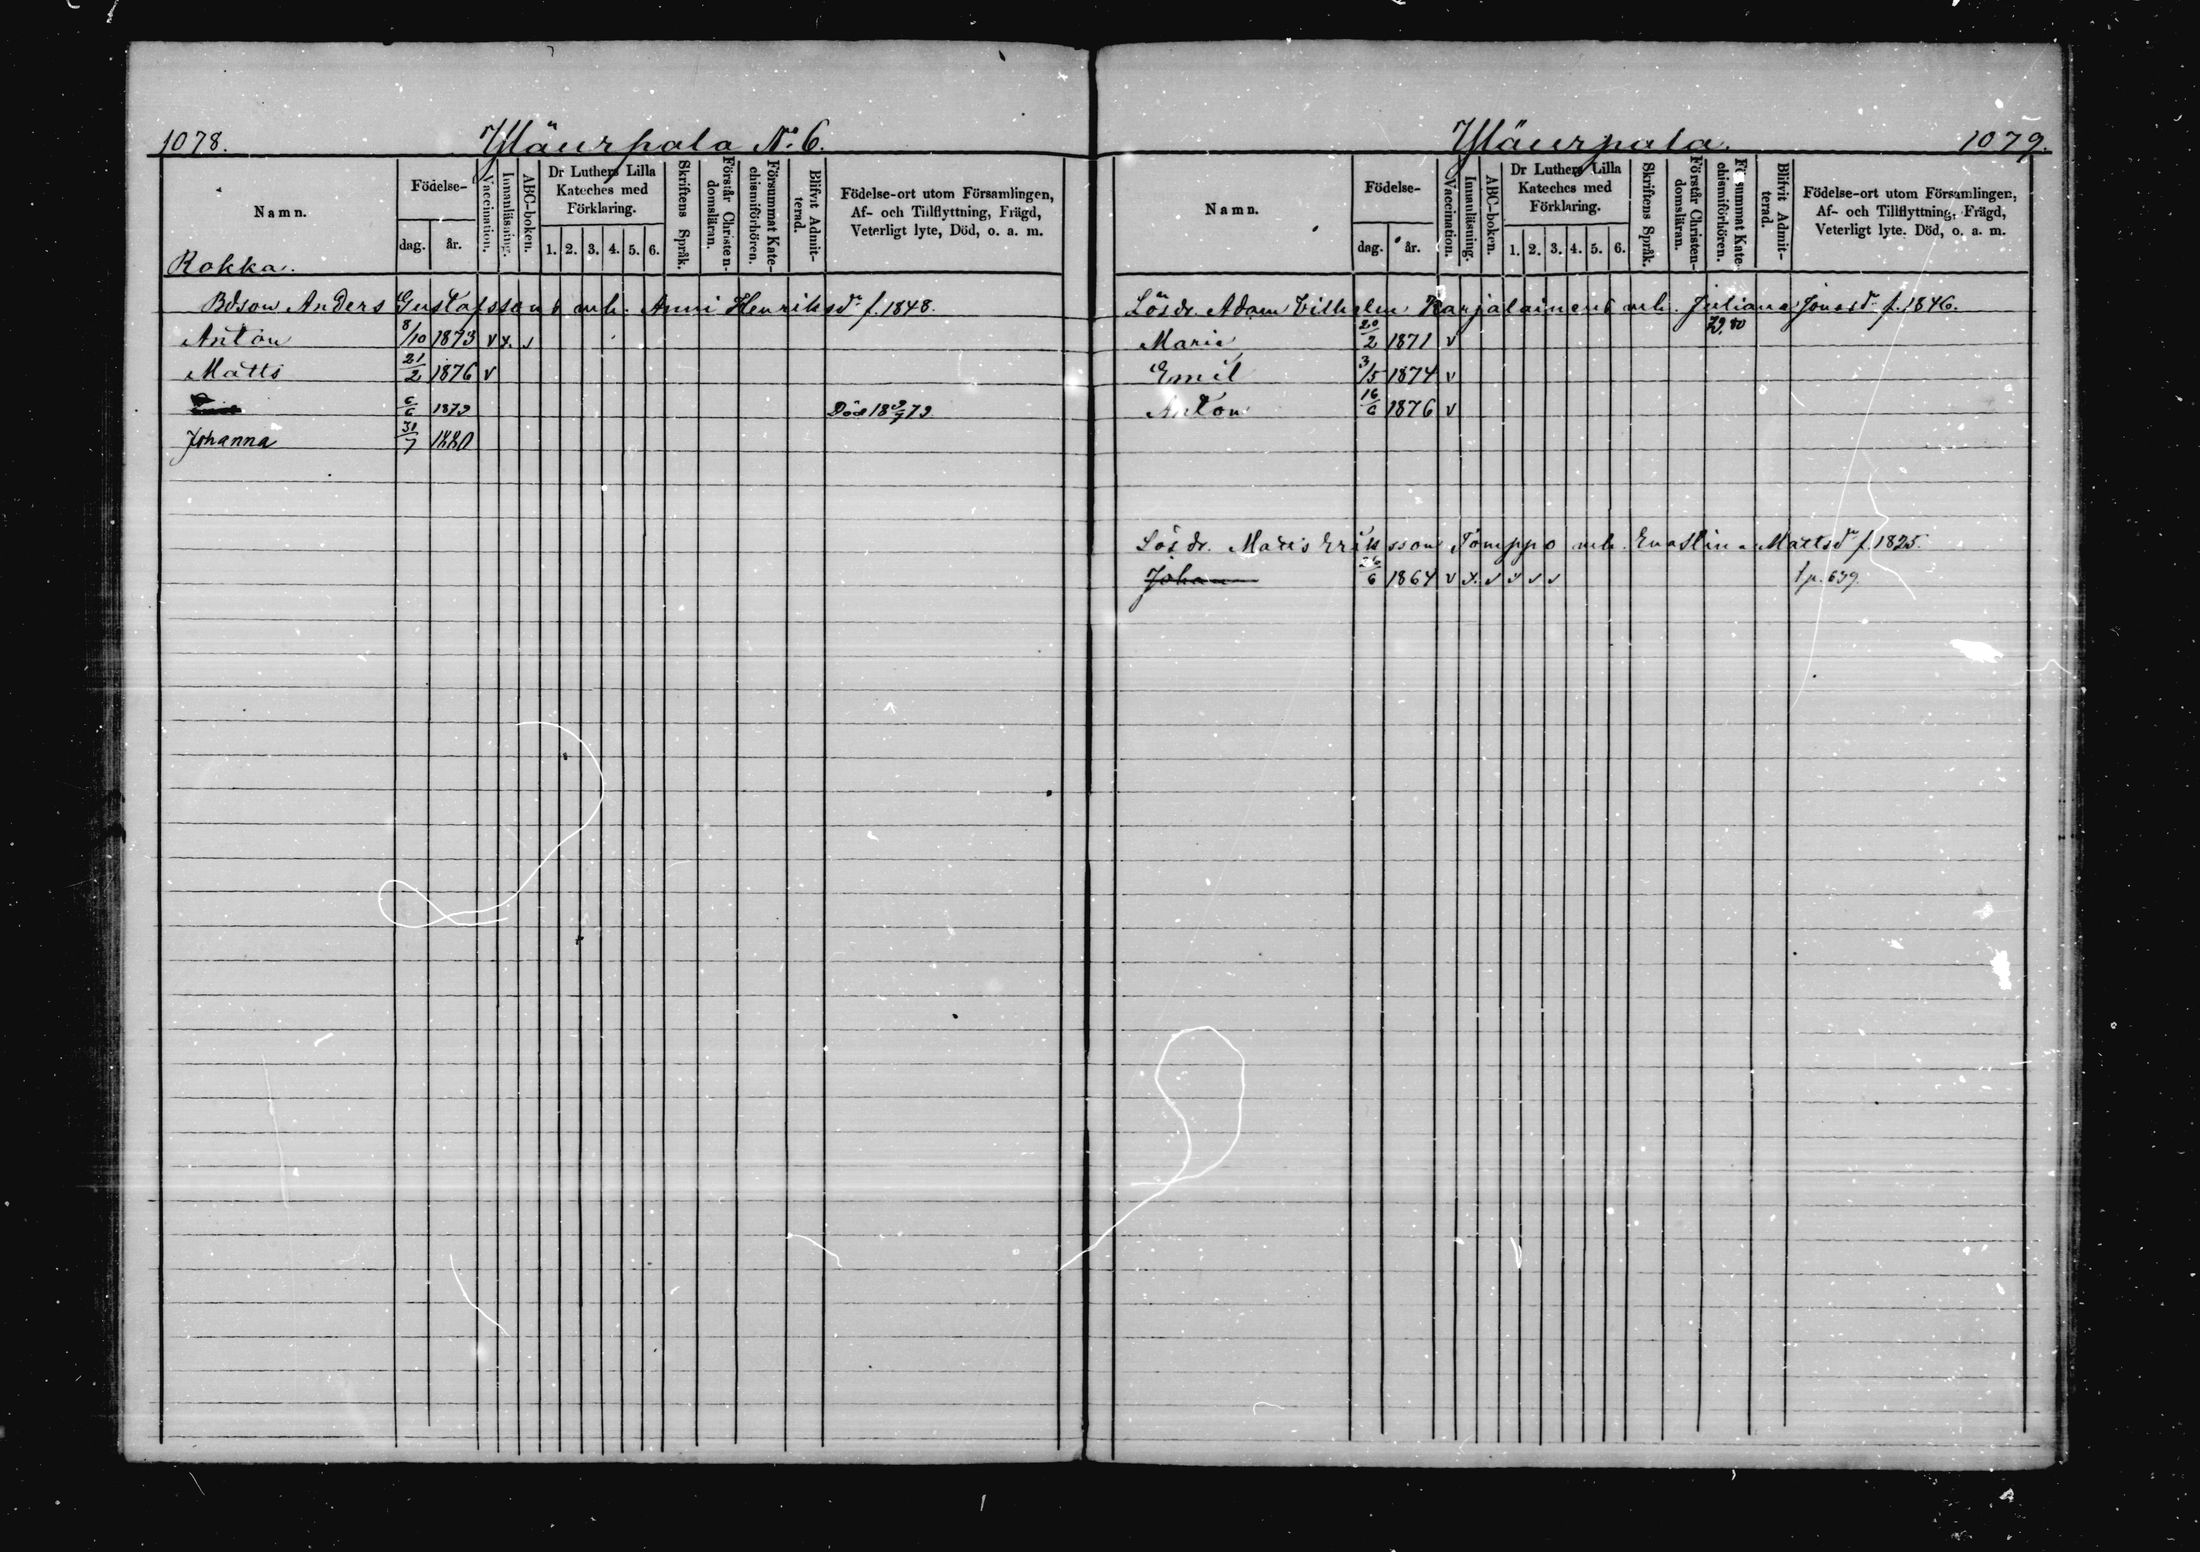 1078.
Yläurpala No 6.
Namn.
Födelse-
dag.
år.
Vaccination.
Innanläsning.
ABC-boken.
Dr Luthers Lilla
Kateches med
Förklaring.
1. 2. 3. 4. 5. 6.
Skriftens Språk.
Förstår Christen-
domsläran.
Försummat Kate-
chismiförhören.
Blifvit Admit-
terad.
Födelse-ort utom Församlingen,
Af- och Tillflyttning, Frägd,
Veterligt lyte, Död, o. a. m.
Rokka.
Bdson Anders Gustafssons enk. Anni Henriksdr f. 1848.
Anton 8/10 1873 v x. v
Matts 21/2 1876 v
6/6 1879 Död 18 9/9 79
Johanna 31/7 1880
Yläurpala.
1079.
Namn.
Födelse-
dag.
år.
Vaccination.
Innanläsning.
ABC-boken.
Dr Luthers Lilla
Kateches med
Förklaring.
1. 2. 3. 4. 5. 6.
Skriftens Språk.
Förstår Christen-
domsläran.
Försummat Kate-
chismiförhören.
Blifvit Admit-
terad.
Födelse-ort utom Församlingen,
Af- och Tillflyttning, Frägd,
Veterligt lyte. Död, o. a. m.
Lösdr. Adam Vilhelm Karjalainens enk. Juliana Jonasdr f. 1846.
79. 80
Maria 20/2 1871 v
Emil 3/5 1874 v
Anton 16/6 1876 v
Lösdr. Matts Eriksson Tömppö enk. Eva Stina Mattsdr f 1825.
Johan 26/6 1864 v x. v v v v t p. 639.